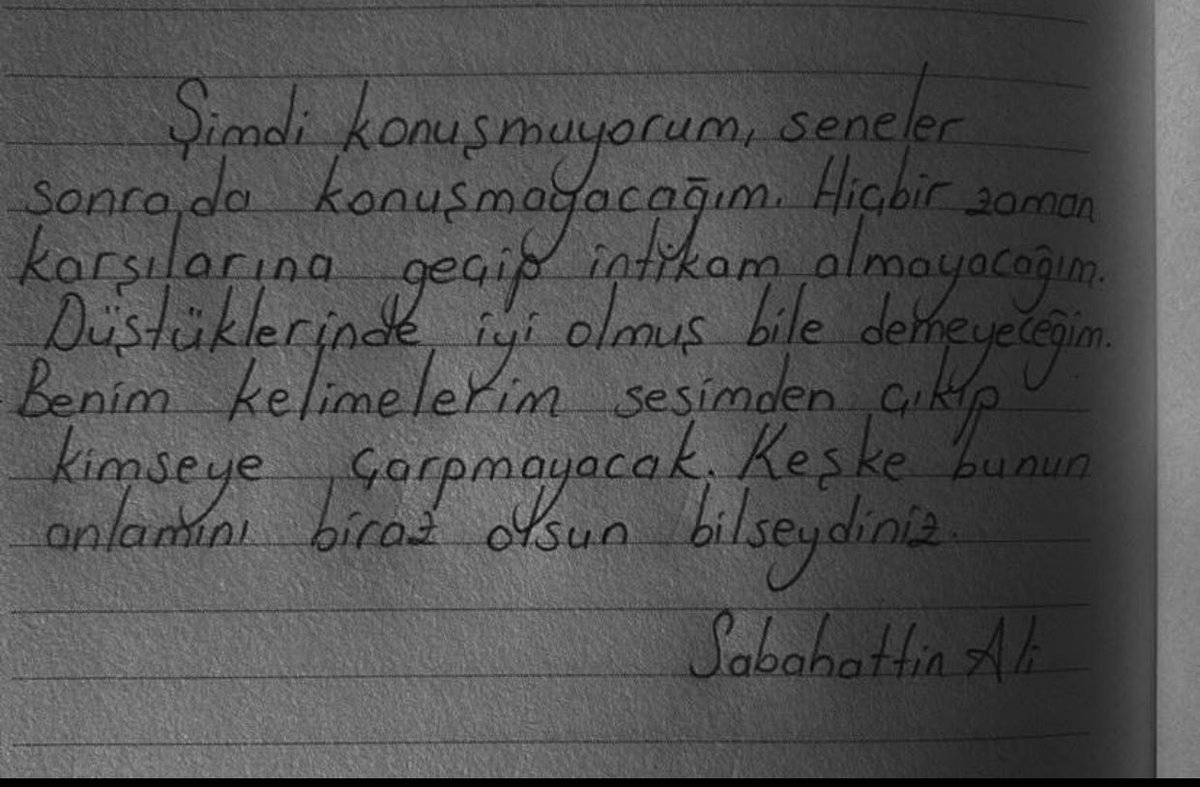 Şimdi konuşmuyorum, seneler
sonra da konuşmayacağım. Hiçbir zaman
karşılarına geçip intikam almayacağım.
Düştüklerinde iyi olmuş bile demeyeceğim.
Benim kelimelerim sesimden çıkıp
kimseye çarpmayacak. Keşke bunun
anlamını biraz olsun bilseydiniz.
Sabahattin Ali